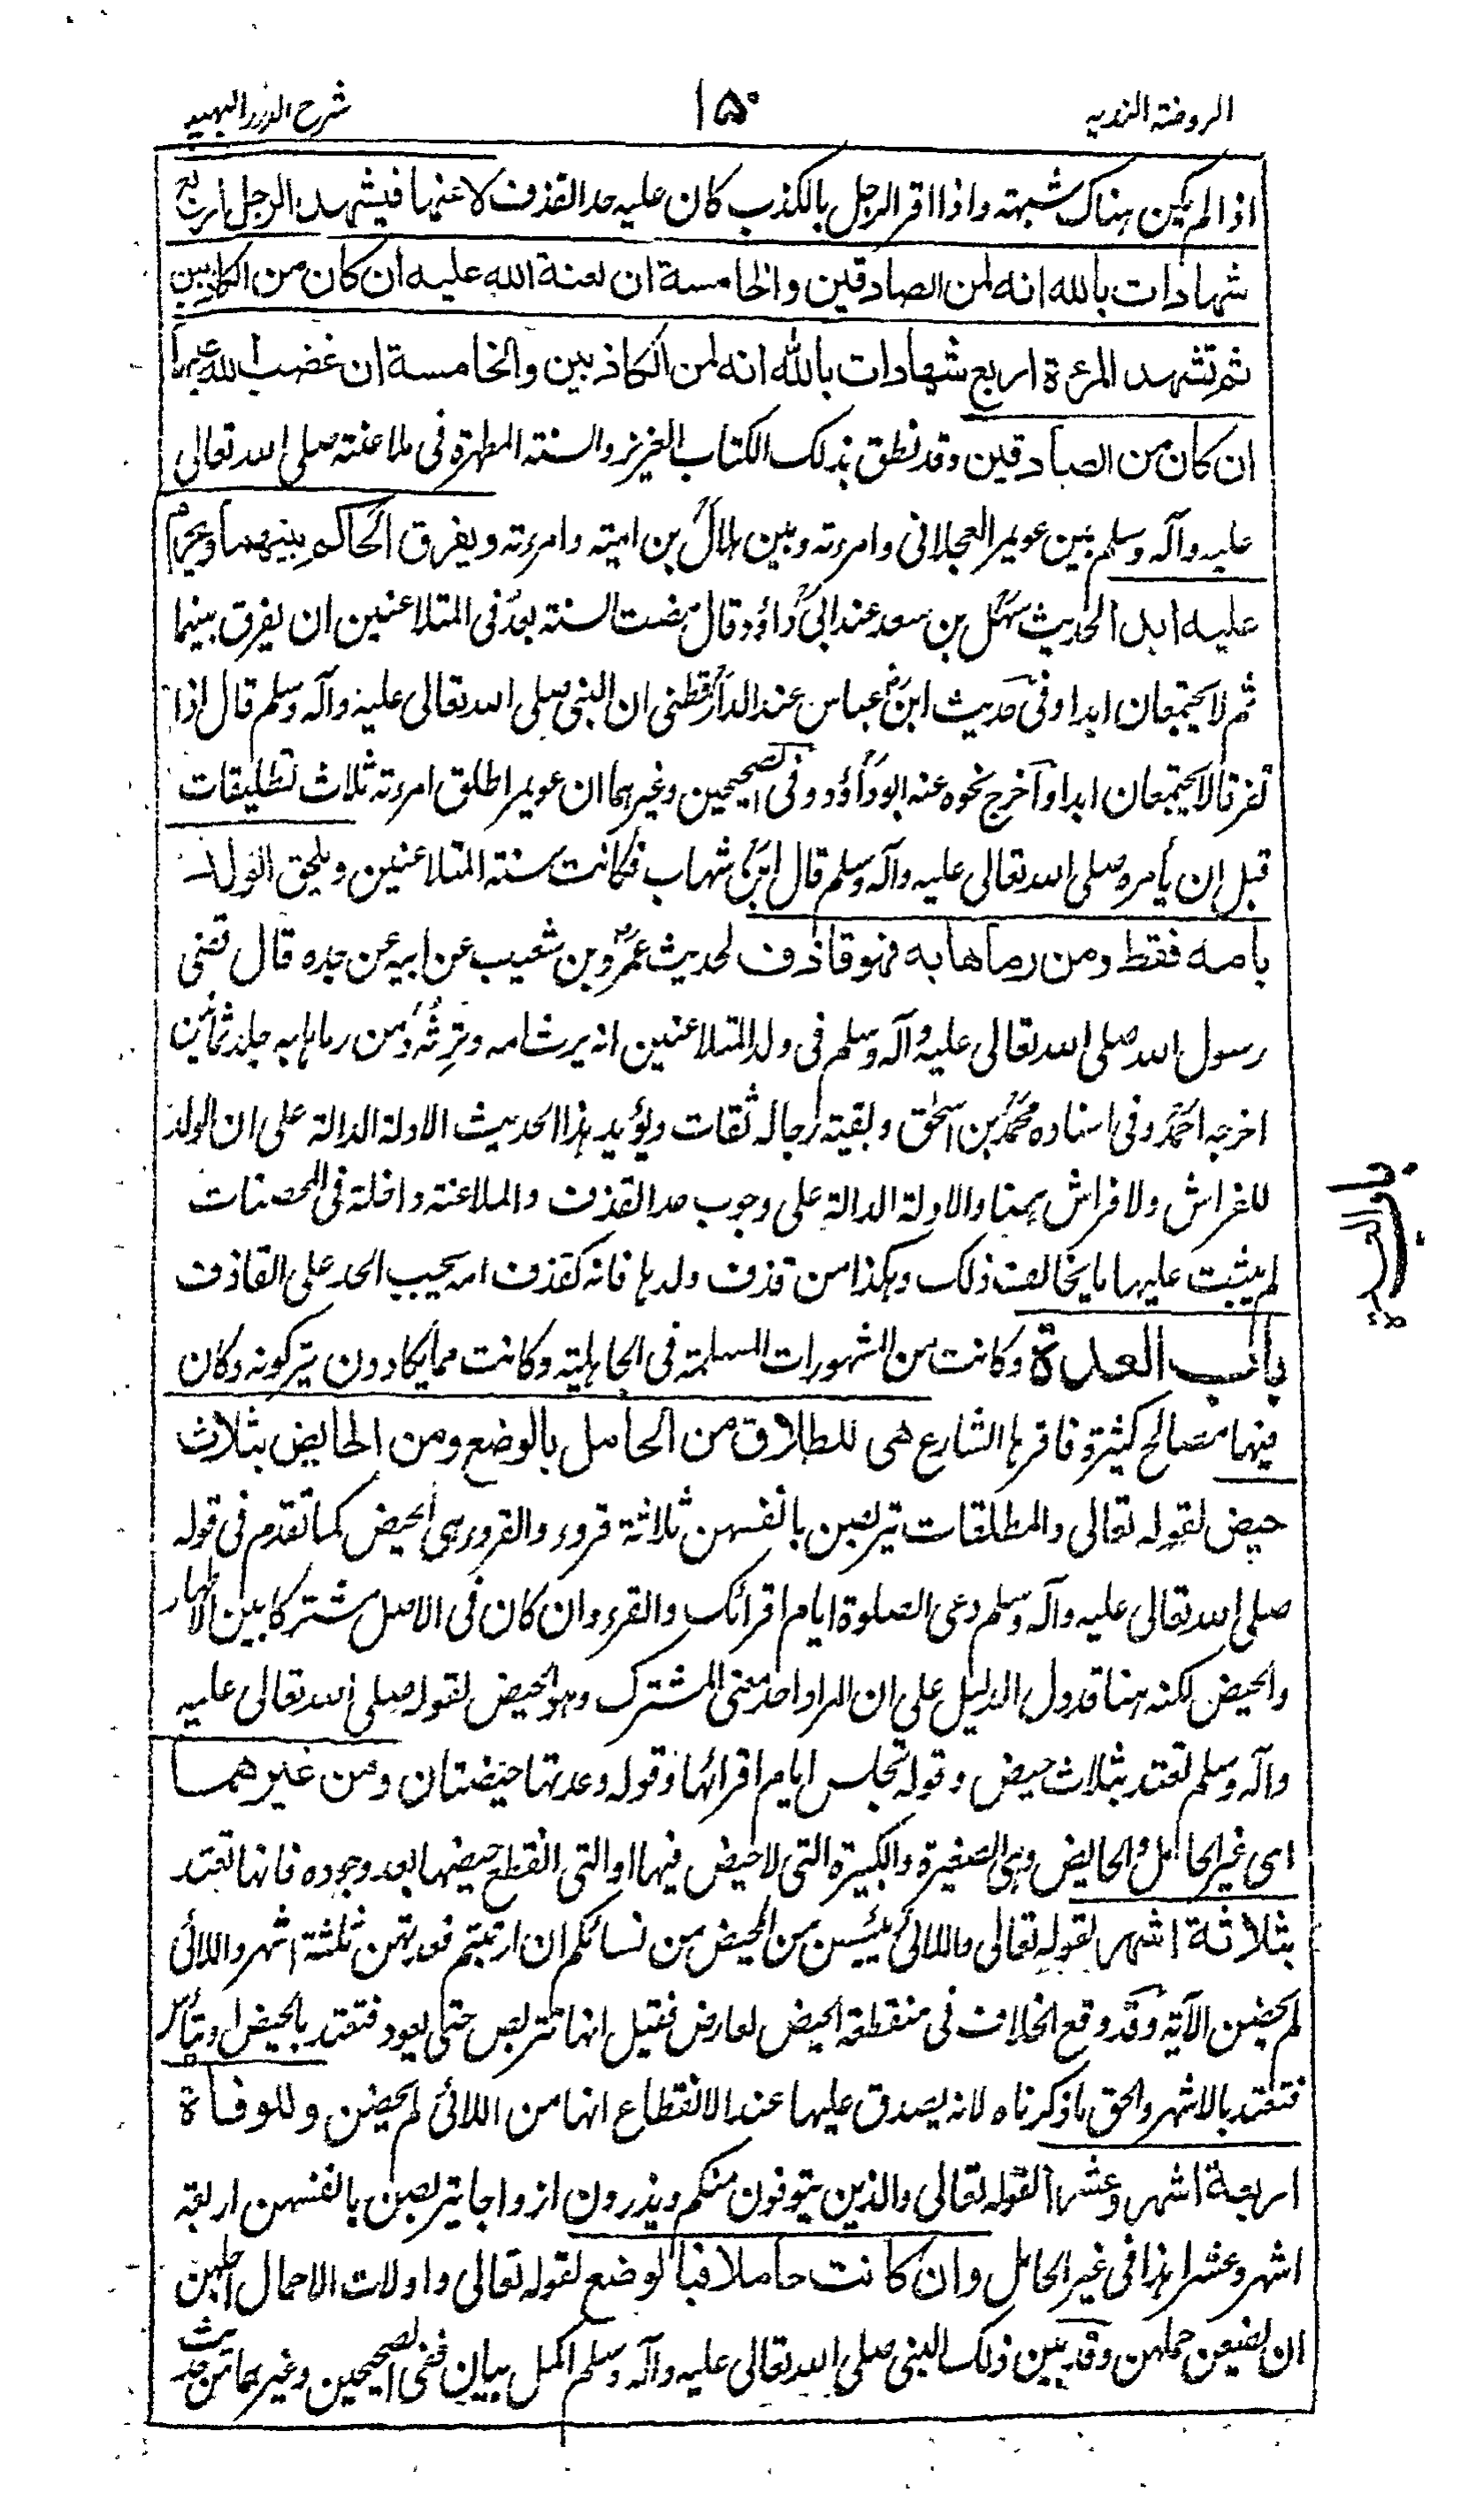 الروضة الندية ١٥٠ شرح الدرر البهية
اذا لم يكن هناك شبهته واذا اقر الرجل بالكذب كان عليه حد القذف لاعنها فيشهد الرجل اربع
شهادات بالله انه لمن الصادقين والخامسة ان لعنة الله عليه ان كان من الكاذبين
ثم تشهد المرءة اربع شهادات بالله انه لمن الكاذبين والخامسة ان غضب الله عليها
ان كان من الصادقين وقد نطق بذلك الكتاب العزيز والسنة المطهرة فى ملاعنته صلى الله تعالى
عليه وآله وسلم بين عويمر العجلانى وامرءته وبين هلال بن امية وامرءته ويفرق الحاكم بينهما ويحرم
عليه ابدا لحديث سهل بن سعد عند ابى داؤد قال مضت السنة بعد فى المتلاعنين ان يفرق بينهما
ثم لا يجتمعان ابدا وفى حديث ابن عباس عند الدارقطنى ان النبى صلى الله تعالى عليه وآله وسلم قال اذا
تفرقا لا يجتمعان ابدا واخرج نحوه عنه ابو داؤد وفى الصحيحين وغيرهما ان عويمرا طلق امرءته ثلاث تطليقات
قبل ان يأمره صلى الله تعالى عليه وآله وسلم قال ابن شهاب فكانت سنة المتلاعنين ويلحق الولد
بامه فقط ومن رماها به فهو قاذف لحديث عمرو بن شعيب عن ابيه عن جده قال قضى
رسول الله صلى الله تعالى عليه وآله وسلم فى ولد المتلاعنين انه يرث امه وترثه ومن رماها به جلد ثمانين
اخرجه احمد وفى اسناده محمد بن اسحق وبقية رجاله ثقات ويؤيد هذا الحديث الادلة الدالة على ان الولد
للفراش ولا فراش هنا والادلة الدالة على وجوب حد القذف والملاعنة داخلة فى المحصنات
لم يثبت عليها ما يخالف ذلك وهكذا من قذف ولدها فانه كقذف امه يجب الحد على القاذف
باب العدة وكانت من المشهورات المسلمة فى الجاهلية وكانت مما لا يكادون يتركونه وكان
فيها مصالح كثيرة فاقرها الشارع هى للطلاق من الحامل بالوضع ومن الحايض بثلاث
حيض لقوله تعالى والمطلقات يتربصن بانفسهن ثلاثة قروء والقروء هى الحيض كما تقدم فى قوله
صلى الله تعالى عليه وآله وسلم دعى الصلوة ايام اقرائك والقرء وان كان فى الاصل مشتركا بين الاطهار
والحيض لكنه هنا قد دل الدليل على ان المراد احد معنى المشترك وهو الحيض لقوله صلى الله تعالى عليه
وآله وسلم تعتد بثلاث حيض وقوله تجلس ايام اقرائها وقوله وعدتها حيضتان ومن غيرهما
اى غير الحامل والحايض وهى الصغيرة والكبيرة التى لا حيض فيها او التى انقطع حيضها بعد وجوده فانها تعتد
بثلاثة اشهر لقوله تعالى واللائى يئسن من المحيض من نسائكم ان ارتبتم فعدتهن ثلثة اشهر واللائى
لم يحضن الآية وقد وقع الخلاف فى منقطعة الحيض لعارض فقيل انها تتربص حتى يعود فتعتد بالحيض او تيأس
فتعتد بالاشهر والحق ما ذكرناه لانه يصدق عليها عند الانقطاع انها من اللائى لم يحضن وللوفاة
اربعة اشهر وعشرا لقوله تعالى والذين يتوفون منكم ويذرون ازواجا يتربصن بانفسهن اربعة
اشهر وعشرا هذا فى غير الحامل وان كانت حاملا فبالوضع لقوله تعالى واولات الاحمال اجلهن
ان يضعن حملهن وقد بين ذلك النبى صلى الله تعالى عليه وآله وسلم اكمل بيان ففى الصحيحين وغيرهما من حديث
باب العدة